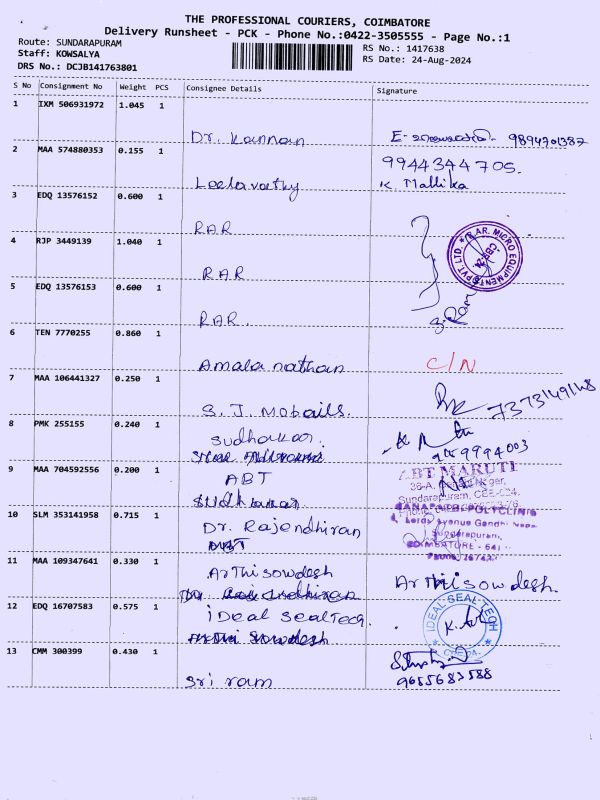 THE PROFESSIONAL COURIERS, COIMBATORE
Delivery Runsheet - PCK - Phone No.:0422-3505555 - Page No.:1
Route: SUNDARAPURAM
RS No.: 1417638
Staff: KOWSALYA
RS Date: 24-Aug-2024
DRS No.: DCJB141763801
S No Consignment No Weight PCS Consignee Details Signature
1 IXM 506931972 1.045 1
Dr. Kannan
2 MAA 574880353 0.155 1
9944344705.
Leelavathy K Mallika
3 EDQ 13576152 0.600 1
RAR
4 RJP 3449139 1.040 1
RAR
R.AR. MICRO EQUIPMENTS PVT. LTD.
5 EDQ 13576153 0.600 1
RAR.
6 TEN 7770255 0.860 1
Amalanathan C/N
7 MAA 106441327 0.250 1
S. J. Mobails. 7373149148
8 PMK 255155 0.240 1
Sudhakar.
9 MAA 704592556 0.200 1
ABT
ABT MARUTI
Sundarapuram,
Sudhakar
10 SLM 353141958 0.715 1
Dr. Rajendhiran
POLYCLINIC
Avenue Gandhi
Sundarapuram,
COIMBATORE - 641
ABT
11 MAA 109347641 0.330 1
Arthisowdesh
Arthisowdesh.
12 EDQ 16707583 0.575 1
ideal sealtech.
IDEAL SEAL TECH
Arthi Sowdesh
13 CMM 300399 0.430 1
Sri ram
9655683588